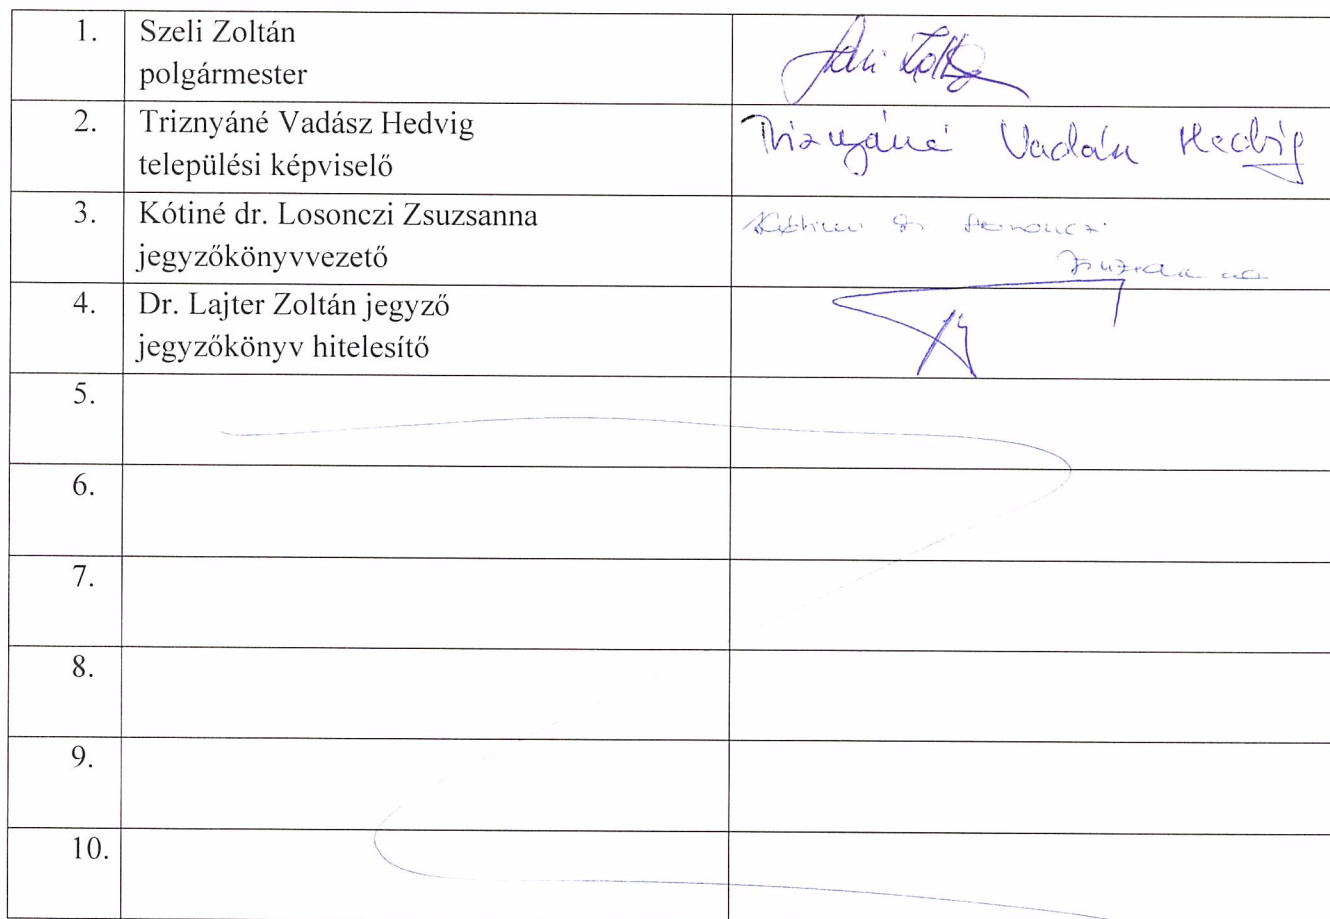 1. Szeli Zoltán
polgármester
2. Triznyáné Vadász Hedvig
települési képviselő
Triznyáné Vadász Hedvig
3. Kótiné dr. Losonczi Zsuzsanna
jegyzőkönyvvezető
Kótiné dr. Losonczi
Zsuzsanna
4. Dr. Lajter Zoltán jegyző
jegyzőkönyv hitelesítő
5.
6.
7.
8.
9.
10.